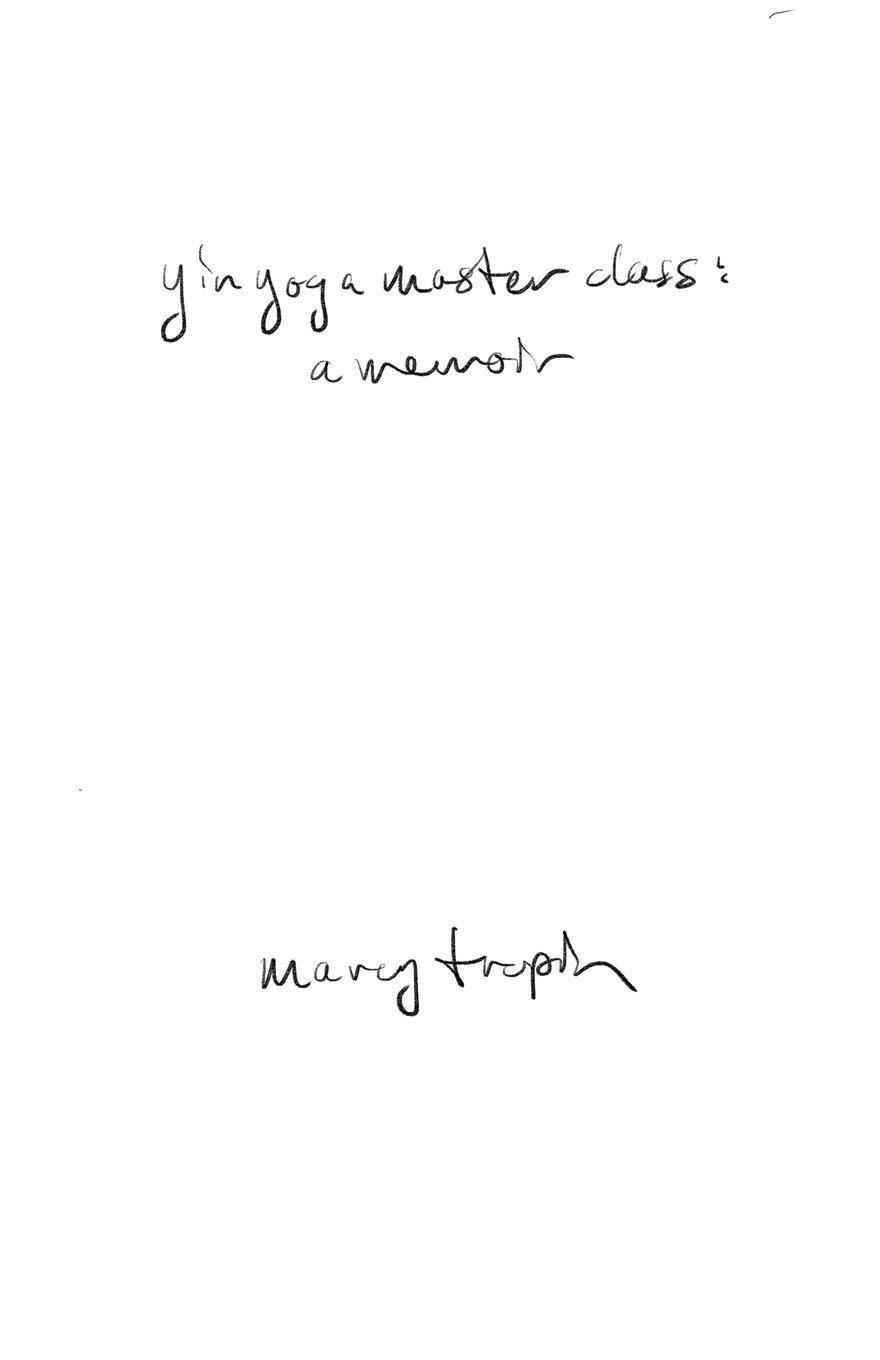 yin yoga master class:
a memoir
marcy tropin